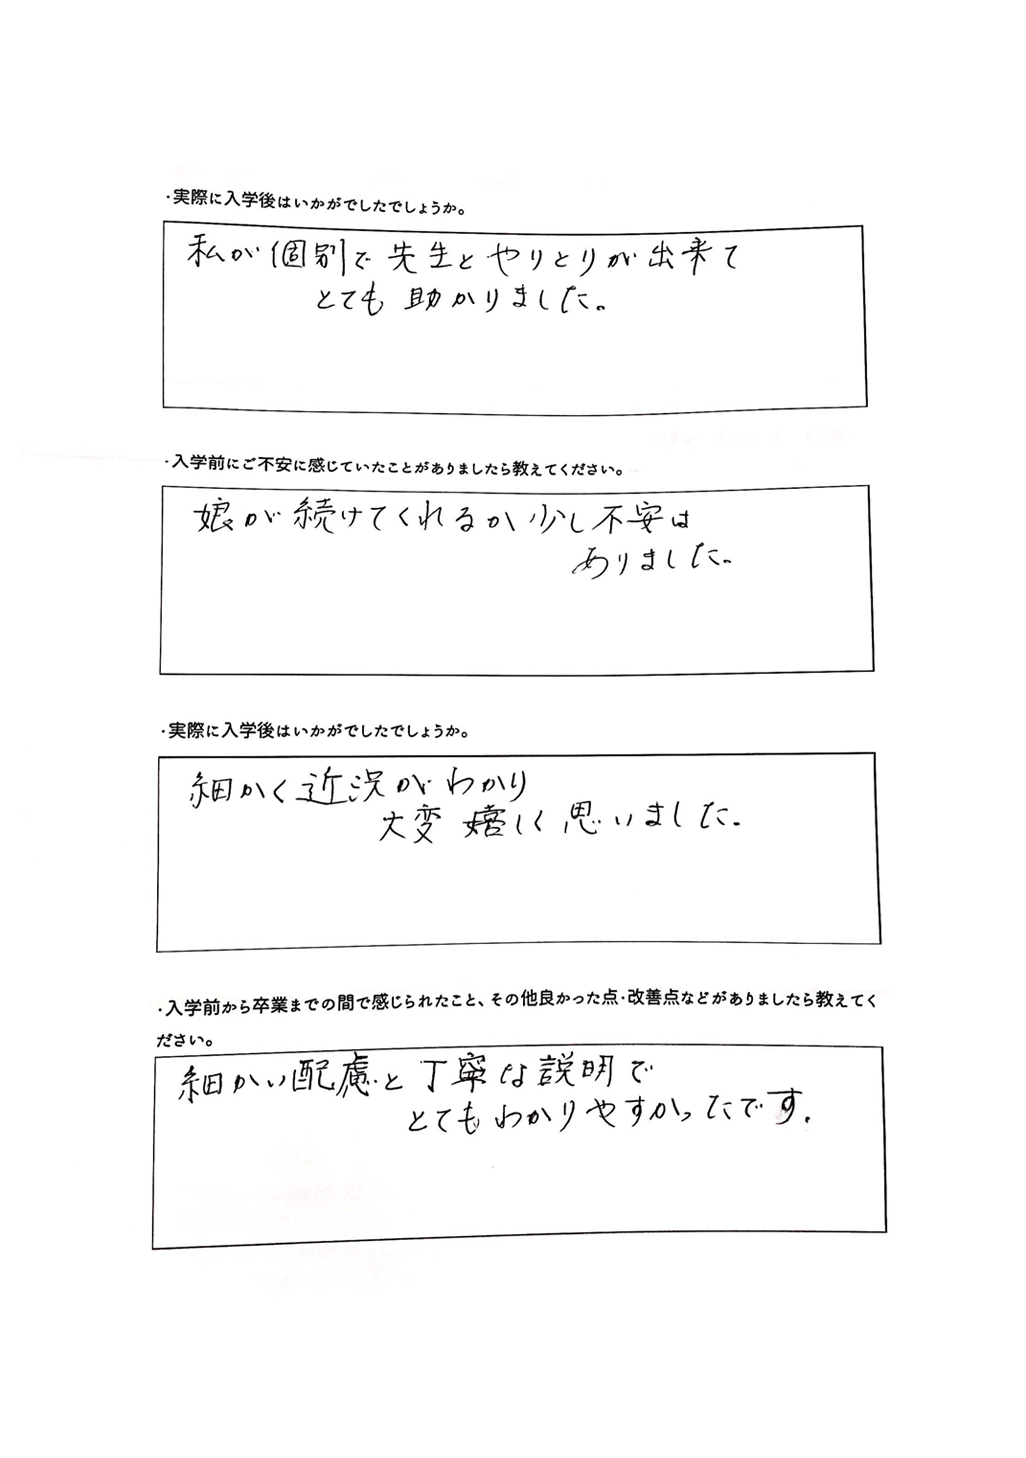 ・実際に入学後はいかがでしたでしょうか。
私が個別で先生とやりとりが出来て
とても助かりました。
・入学前にご不安に感じていたことがありましたら教えてください。
娘が続けてくれるか少し不安は
ありました。
・実際に入学後はいかがでしたでしょうか。
細かく近況がわかり
大変嬉しく思いました。
・入学前から卒業までの間で感じられたこと、その他良かった点・改善点などがありましたら教えてく
ださい。
細かい配慮と丁寧な説明で
とてもわかりやすかったです.